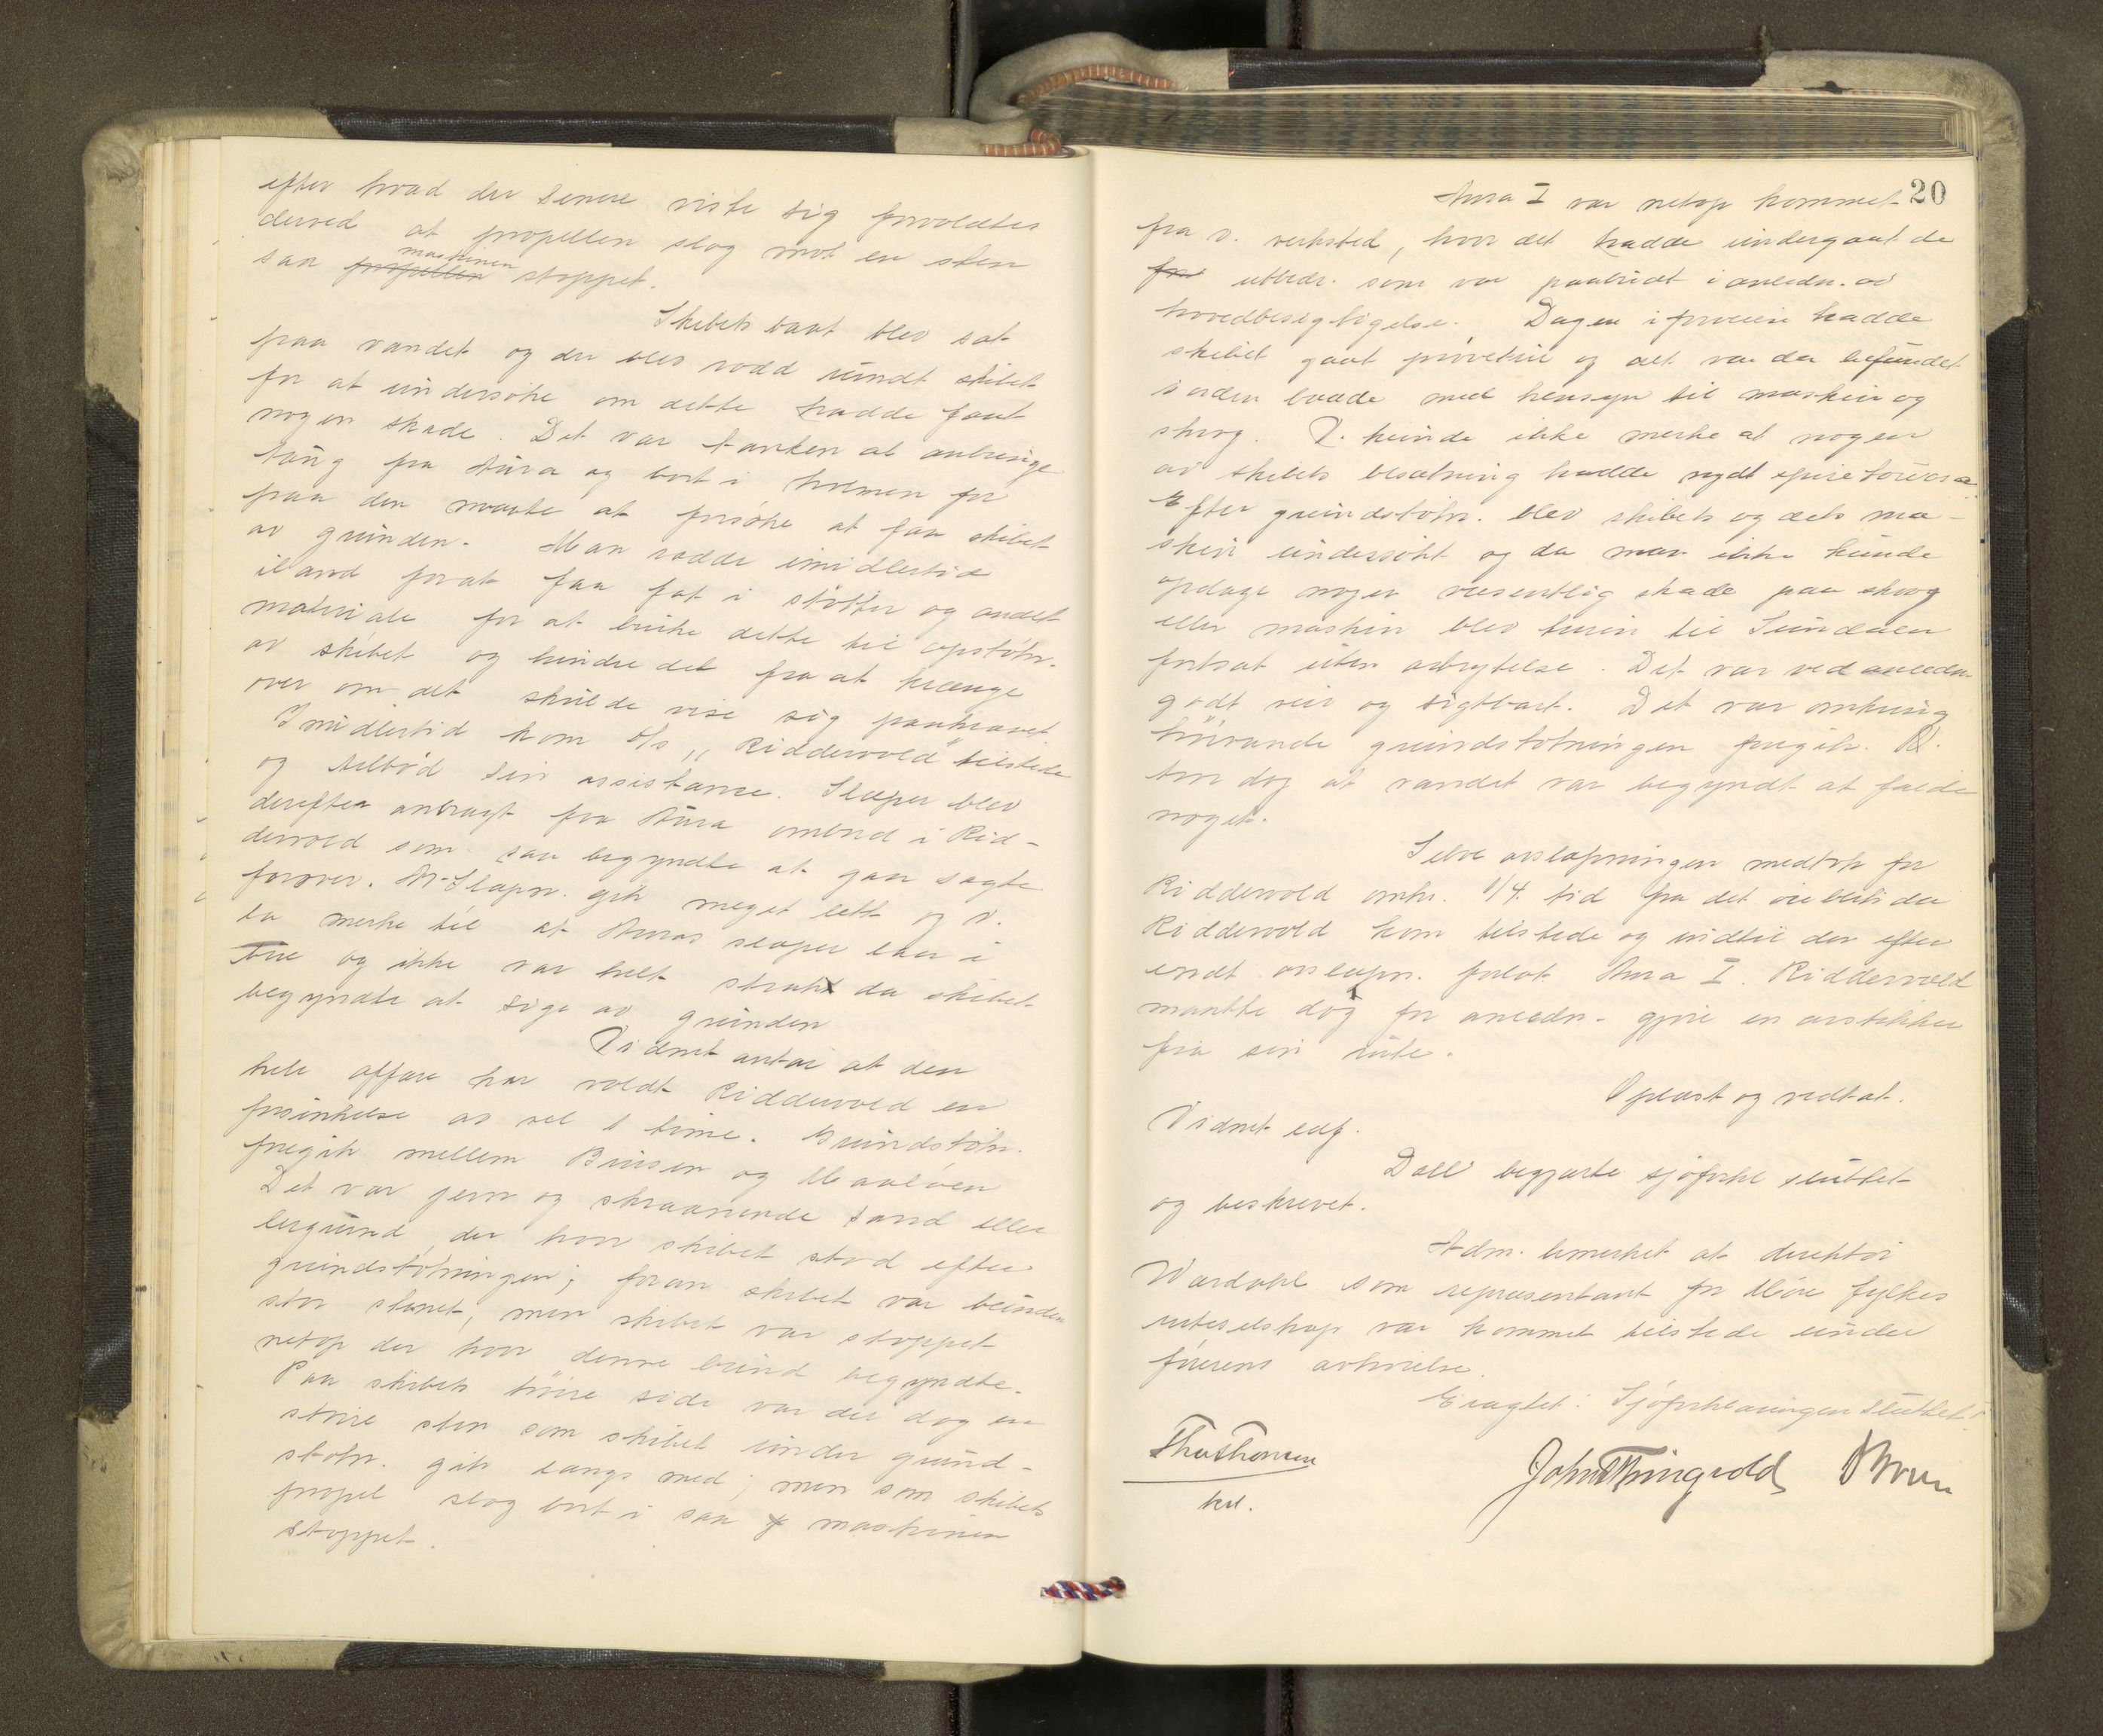 efter hvad der senere viste sig forvoldtes
derved at propellen slog mot en sten
saa propellen maskinen stoppet.
Skibets baat blev sat
paa vandet og der blev rodd rundt skibet
for at undersøke om dette hadde faat
nogen skade. Det var tanken at anbringe
taug fra Aura og bort i holmen for
paa den maate at forsøke at faa skibet
av grunden. Man rodde imidlertid
iland forat faa fat i støtter og andet
materiale for at bruke dette til opstøtn.
av skibet og hindre det fra at krænge
over om det skulde vise sig paakrævet
Imidlertid kom d/s "Ridderwold" tilstede
og tilbød sin assistance. Slæper blev
derefter anbragt fra Aura ombord i Rid-
dervold som saa begyndte at gaa sagte
forover. Av-Slæpn. gik meget lett og v.
la merke til at Auras slæper laa i
bue og ikke var helt strakt da skibet
begyndte at sige av grunden
Vidnet antar at den
hele affære har voldt Riddervold en
forsinkelse av vel 1 time. Grundstøtn.
foregik mellem Brusen og Maaløen
Det var jevn og skraanende sand eller
lergrund der hvor skibet stod efter
grundstøtningen; foran skibet var bunden
stor stenet, men skibet var stoppet
netop der hvor denne bund begyndte.
Paa skibets høire side var der dog en
større sten som skibet under grund-
støtn. gik langs med; men som skibets
propel slog bort i saa maskinen
stoppet.
20
Aura I var netop kommet
fra v. verksted, hvor det hadde undergaat de
for utbedr. som var paabudt i anledn. av
hovedbesigtigelse. Dagen i forveien hadde
skibet gaat prøvetur og alt var da befundet
i orden baade med hensyn til maskin og
skrog. V. kunde ikke merke at nogen
av skibets besætning hadde nydt spirituosa
Efter grundstøtn. blev skibets og dets ma-
skin undersøkt og da man ikke kunde
opdage nogen væsentlig skade paa skrog
eller maskin blev turen til Sundalen
fortsat uten avbrytelse. Det var ved anledn.
godt veir og sigtbart. Det var omkring
høivande grundstøtningen foregik. V.
tror dog at vandet var begyndt at falde
noget.
Selve avslæpningen medtok for
Riddervold omkr. 1/4 tid fra det øieblik da
Riddervold kom tilstede og indtil den efter
endt avslæpn. forlot Aura I. Riddervold
maatte dog for anledn. gjøre en avstikker
fra sin rute.
Oplæst og vedtat.
Vidnet edf.
Dall begjærte sjøforkl sluttet
og beskrevet.
Adm. bemerket at direktør
Wardahl som repræsentant for Møre fylkes
ruteselskap var kommet tilstede under
førerens avhørelse.
Eragtet: Sjøforklaringen sluttet
Thv Thonsen John S Tringvold
kst.